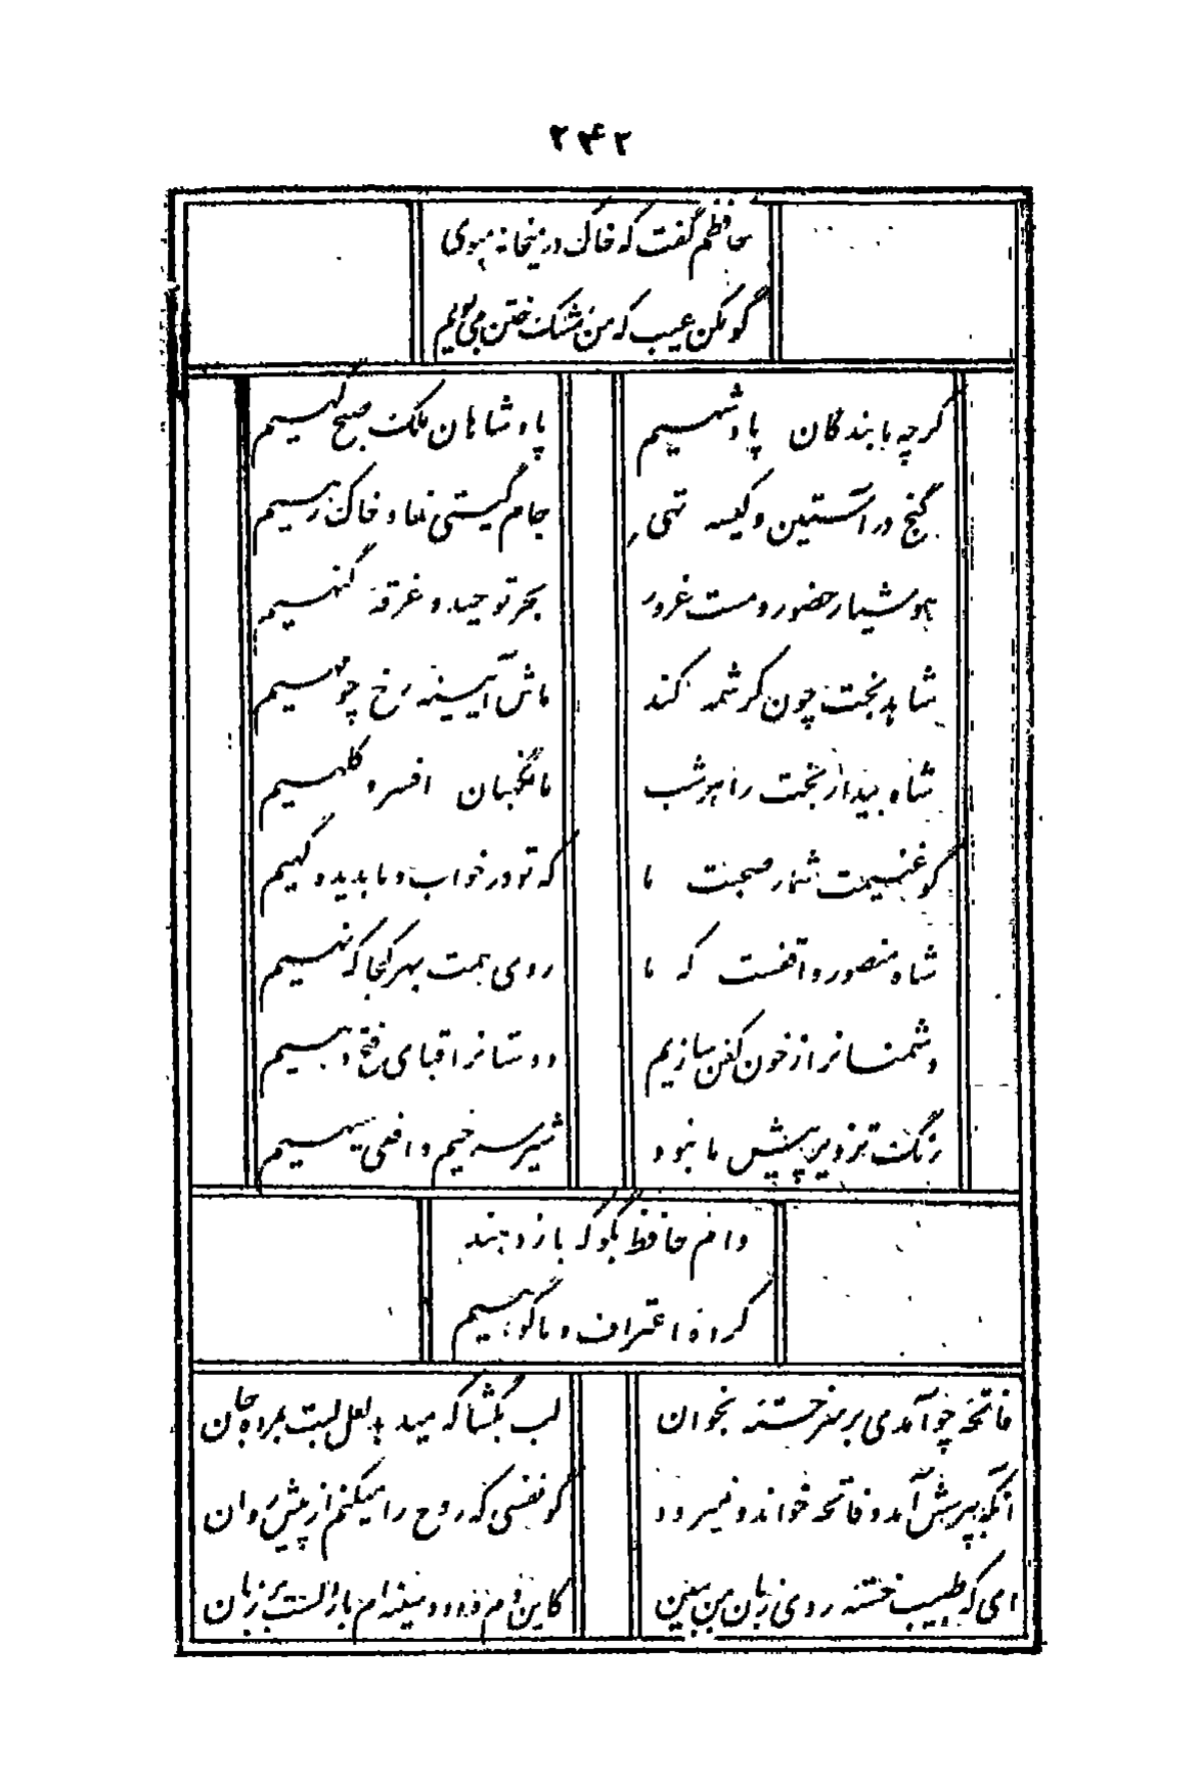 ۲۴۲
حافظم گفت که خاک در میخانه مبوی
گو مکن عیب که من مشک ختن می بویم
گرچه ما بندگان پادشهیم
پادشاهان ملک صبح گهیم
گنج در آستین و کیسه تهی
جام گیتی نما و خاک رهیم
هوشیار حضور و مست غرور
بحر توحید و غرقه گنهیم
شاهد بخت چون کرشمه کند
ماش آیینه رخ چو مهیم
شاه بیدار بخت را هر شب
ما نگهبان افسر و کلهیم
گو غنیمت شمار صحبت ما
که تو در خواب و ما بدیده گهیم
شاه منصور واقفست که ما
روی همت بهر کجا که نهیم
دشمنانرا ز خون کفن سازیم
دوستانرا قبای فتح دهیم
رنگ تزویر پیش ما نبود
شیر سرخیم و افعی سیهیم
وام حافظ بگو که باز دهند
کرده اعتراف و ما گوهیم
فاتحهٔ چو آمدی بر سر خستهٔ بخوان
لب بگشا که میدهد لعل لبت بمرده جان
آنکه بپرسش آمد و فاتحه خواند و میرود
گو نفسی که روح را میکنم از پیش روان
ای که طبیب خستهٔ روی زبان من ببین
کاین دم و دود سینه ام بار دلست بر زبان